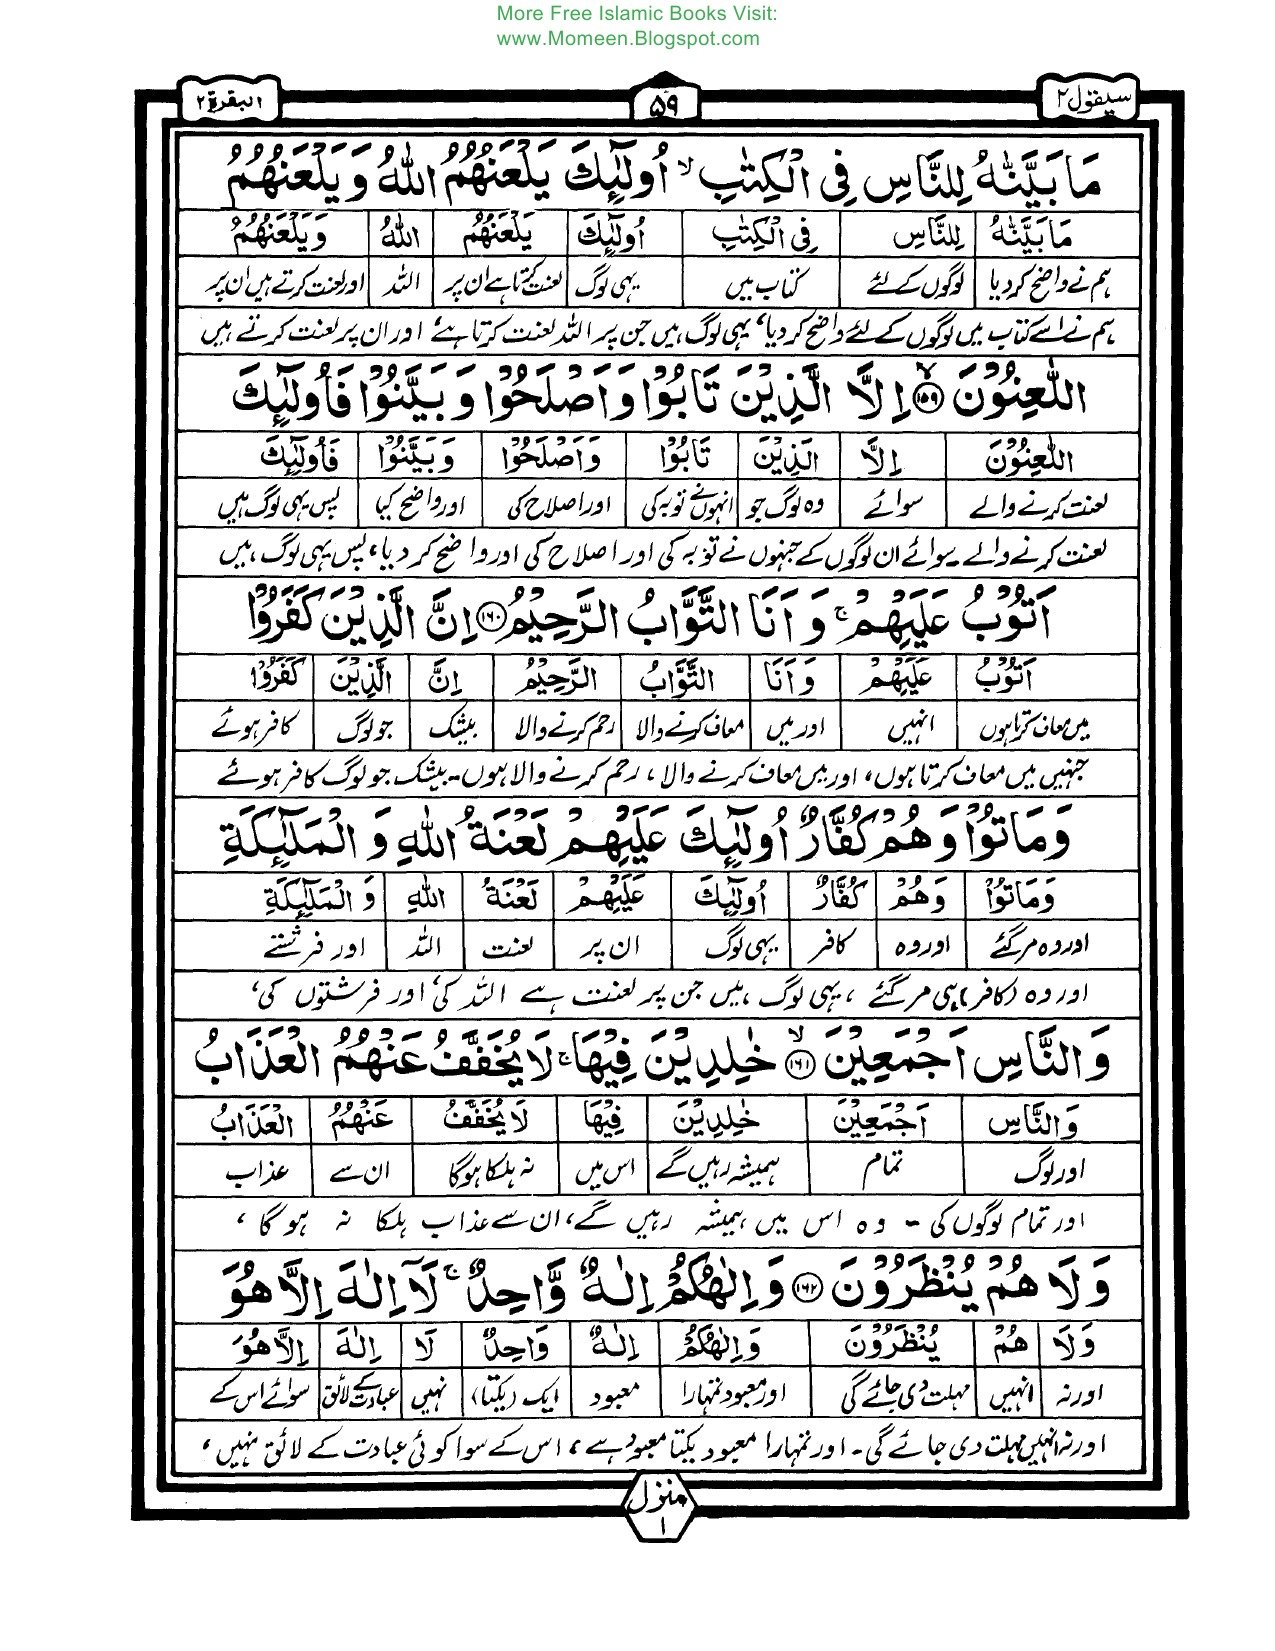 More Free Islamic Books Visit:
www.Momeen.Blogspot.com
سیقول ۲ ۵۹ البقرة ۲
مَا بَيَّنّٰهُ لِلنَّاسِ فِى الْكِتٰبِ ۙ اُولٰٓئِكَ يَلْعَنُهُمُ اللّٰهُ وَ يَلْعَنُهُمُ
مَا بَيَّنّٰهُ لِلنَّاسِ فِى الْكِتٰبِ اُولٰٓئِكَ يَلْعَنُهُمُ اللّٰهُ وَيَلْعَنُهُمُ
ہم نے واضح کردیا لوگوں کے لئے کتاب میں یہی لوگ لعنت کرتا ہے ان پر اللہ اور لعنت کرتے ہیں ان پر
ہم نے اسے کتاب میں لوگوں کے لئے واضح کر دیا، یہی لوگ ہیں جن پر اللہ لعنت کرتا ہے، اور ان پر لعنت کرتے ہیں
اللّٰعِنُوْنَ ۙ﴿۱۵۹﴾ اِلَّا الَّذِيْنَ تَابُوْا وَ اَصْلَحُوْا وَ بَيَّنُوْا فَاُولٰٓئِكَ
اللّٰعِنُوْنَ اِلَّا الَّذِيْنَ تَابُوْا وَ اَصْلَحُوْا وَ بَيَّنُوْا فَاُولٰٓئِكَ
لعنت کرنے والے سوائے وہ لوگ جو انہوں نے توبہ کی اور اصلاح کی اور واضح کیا پس یہی لوگ ہیں
لعنت کرنے والے۔ سوائے ان لوگوں کے جنہوں نے توبہ کی اور اصلاح کی اور واضح کر دیا، پس یہی لوگ ہیں
اَتُوْبُ عَلَيْهِمْ ۚ وَ اَنَا التَّوَّابُ الرَّحِيْمُ ﴿۱۶۰﴾ اِنَّ الَّذِيْنَ كَفَرُوْا
اَتُوْبُ عَلَيْهِمْ وَ اَنَا التَّوَّابُ الرَّحِيْمُ اِنَّ الَّذِيْنَ كَفَرُوْا
میں معاف کرتا ہوں انہیں اور میں معاف کرنے والا رحم کرنے والا بیشک جو لوگ کافر ہوئے
جنہیں میں معاف کرتا ہوں، اور میں معاف کرنے والا، رحم کرنے والا ہوں۔ بیشک جو لوگ کافر ہوئے
وَ مَاتُوْا وَ هُمْ كُفَّارٌ اُولٰٓئِكَ عَلَيْهِمْ لَعْنَةُ اللّٰهِ وَ الْمَلٰٓئِكَةِ
وَ مَاتُوْا وَ هُمْ كُفَّارٌ اُولٰٓئِكَ عَلَيْهِمْ لَعْنَةُ اللّٰهِ وَ الْمَلٰٓئِكَةِ
اور وہ مر گئے اور وہ کافر یہی لوگ ان پر لعنت اللہ اور فرشتے
اور وہ (کافر) ہی مر گئے، یہی لوگ ہیں جن پر لعنت ہے اللہ کی، اور فرشتوں کی،
وَ النَّاسِ اَجْمَعِيْنَ ۙ﴿۱۶۱﴾ خٰلِدِيْنَ فِيْهَا ۚ لَا يُخَفَّفُ عَنْهُمُ الْعَذَابُ
وَ النَّاسِ اَجْمَعِيْنَ خٰلِدِيْنَ فِيْهَا لَا يُخَفَّفُ عَنْهُمُ الْعَذَابُ
اور لوگ تمام ہمیشہ رہیں گے اس میں نہ ہلکا ہوگا ان سے عذاب
اور تمام لوگوں کی ۔ وہ اس میں ہمیشہ رہیں گے، ان سے عذاب ہلکا نہ ہو گا ،
وَ لَا هُمْ يُنْظَرُوْنَ ﴿۱۶۲﴾ وَ اِلٰهُكُمْ اِلٰهٌ وَّاحِدٌ ۚ لَآ اِلٰهَ اِلَّا هُوَ
وَ لَا هُمْ يُنْظَرُوْنَ وَ اِلٰهُكُمْ اِلٰهٌ وَاحِدٌ لَا اِلٰهَ اِلَّا هُوَ
اور نہ انہیں مہلت دی جائے گی اور معبود تمہارا معبود ایک (یکتا) نہیں عبادت کے لائق سوائے اس کے
اور نہ انہیں مہلت دی جائے گی۔ اور تمہارا معبود یکتا معبود ہے، اس کے سوا کوئی عبادت کے لائق نہیں،
منزل
۱